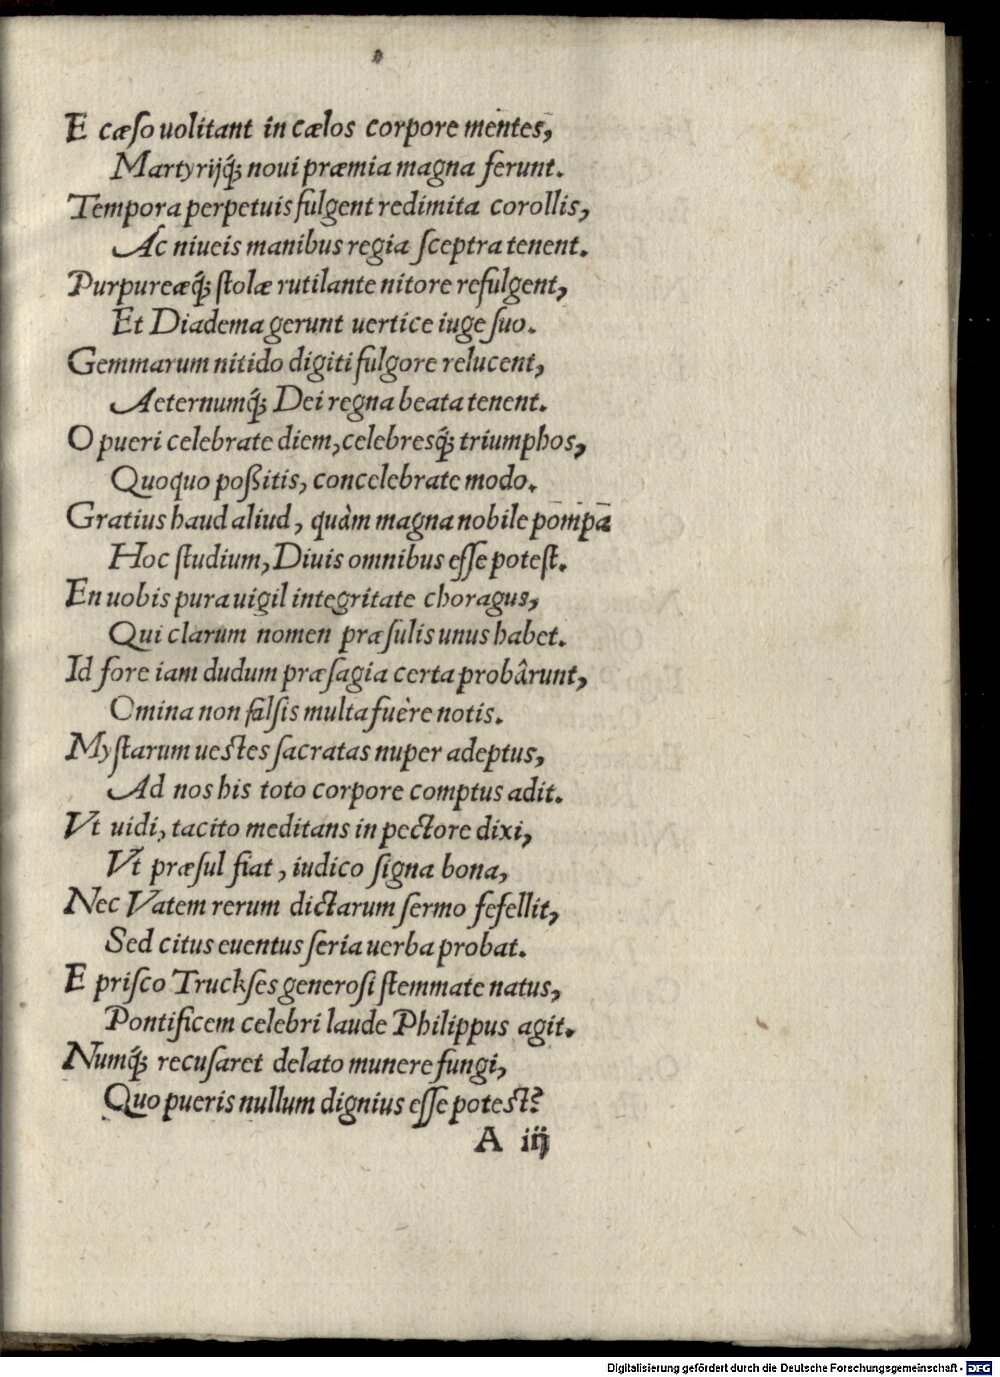 E cæſo uolitant in cælos corpore mentes,
Martyrijq́; noui præmia magna ferunt.
Tempora perpetuis fulgent redimita corollis,
Ac niueis manibus regia ſceptra tenent.
Purpureæq́; ſtolæ rutilante nitore refulgent,
Et Diadema gerunt uertice iuge ſuo.
Gemmarum nitido digiti fulgore relucent,
Aeternumq́; Dei regna beata tenent.
O pueri celebrate diem, celebresq́; triumphos,
Quoquo poßitis, concelebrate modo.
Gratius haud aliud, quàm magna nobile pōmpā
Hoc ſtudium, Diuis omnibus eſſe poteſt.
En uobis pura uigil integritate choragus,
Qui clarum nomen præſulis unus habet.
Id fore iam dudum præſagia certa probârunt,
Omina non falſis multa fuère notis.
Myſtarum ueſtes ſacratas nuper adeptus,
Ad nos his toto corpore comptus adit.
Vt uidi, tacito meditans in pectore dixi,
Vt præſul fiat, iudico ſigna bona,
Nec Vatem rerum dictarum ſermo fefellit,
Sed citus euentus ſeria uerba probat.
E priſco Truckſes generoſi ſtemmate natus,
Pontificem celebri laude Philippus agit.
Numq́; recuſaret delato munere fungi,
Quo pueris nullum dignius eſſe poteſt?
A iij
Digitalisierung gefördert durch die Deutsche Forschungsgemeinschaft - DFG